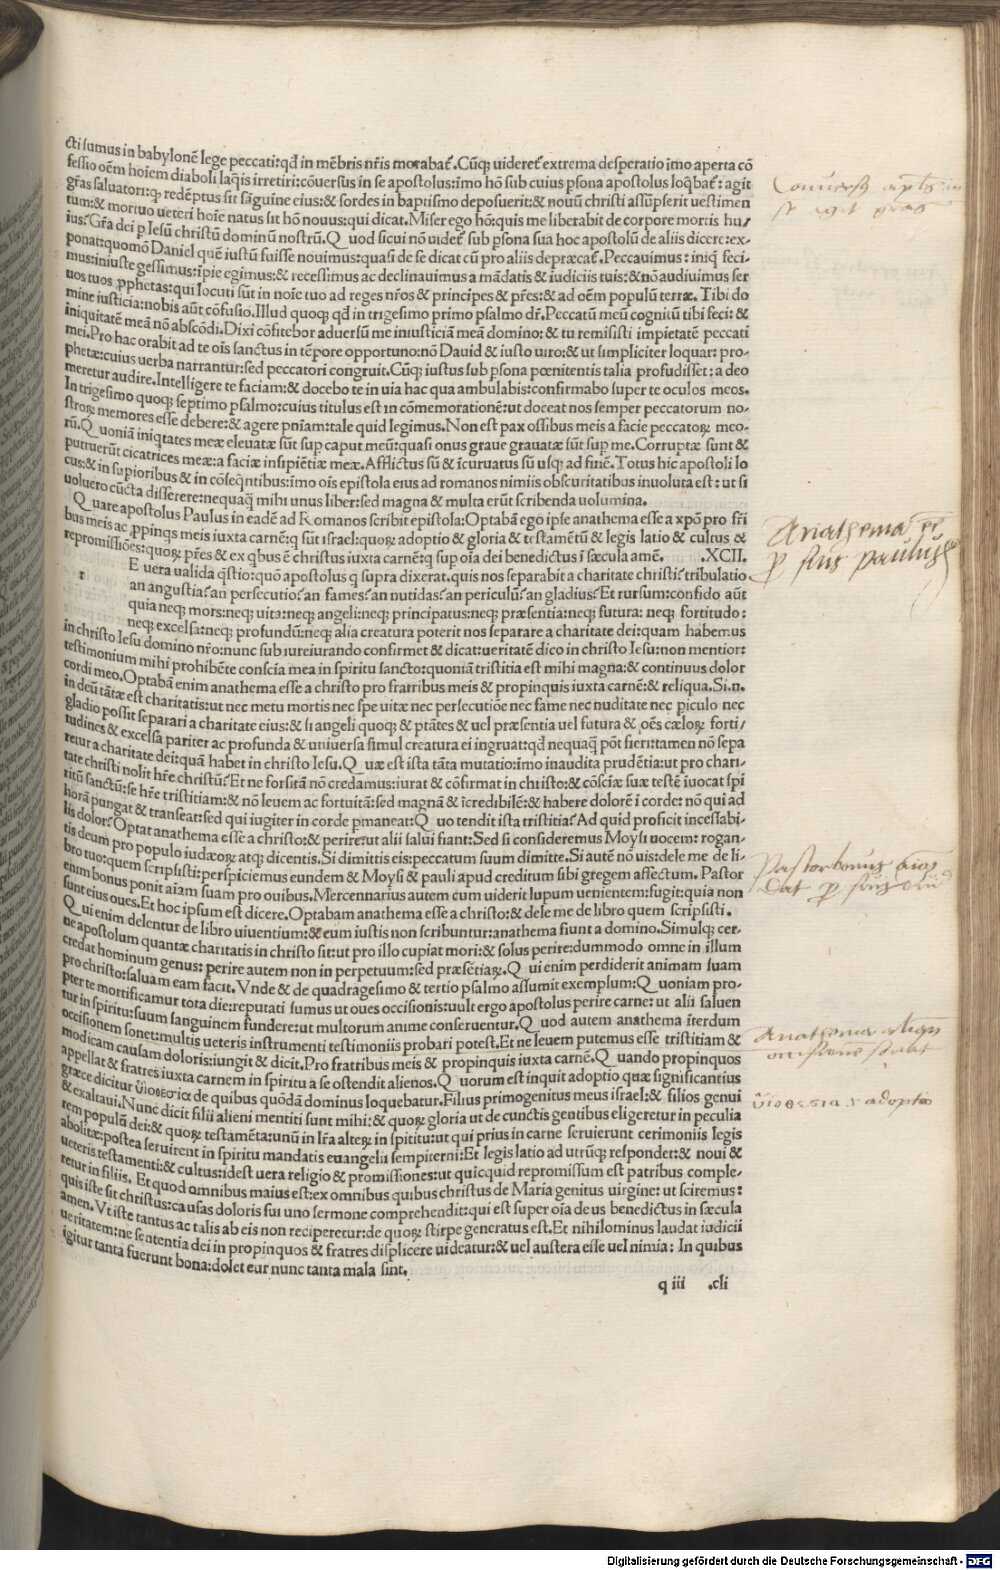 cti sumus in babylonē lege peccati:qđ in mēbris nr̄is morabat̄.Cūq; uideret̄ extrema desperatio īmo aperta cō
fessio oēm hoīem diaboli laq̄is irretiri:cōuersus in se apostolus:īmo hō sub cuius psona apostolus loq̄bat̄:agit
gr̄as saluatori:q; redēptus sit sāguine eius:& sordes in baptismo deposuerit:& nouū christi assūpserit uestimen
tum:& mortuo ueteri hoīe natus sit hō nouus:qui dicat.Miser ego hō:quis me liberabit de corpore mortis hu/
ius?Gr̄a dei p Iesū christū dominū nostrū.Q uod sicui nō uidet̄ sub psona sua hoc apostolū de aliis dicere:ex-
ponat:quomō Daniel quē iustū fuisse nouimus:quasi de se dicat cū pro aliis depræcat̄.Peccauimus:iniq̄ feci-
mus:iniuste gessimus:īpie egimus:& recessimus ac declinauimus a mādatis & iudiciis tuis:& nō audiuimus ser
uos tuos pphetas:qui locuti sūt in noīe tuo ad reges nr̄os & principes & pr̄es:& ad oēm populū terræ. Tibi do
mine iusticia:nobis aūt cōfusio.Illud quoq; qđ in trigesimo primo psalmo dr̄.Peccatū meū cognitū tibi feci:&
iniquitatē meā nō abscōdi.Dixi cōfitebor aduersū me iniusticiā meā domino:& tu remisisti impietatē peccati
mei.Pro hac orabit ad te oīs sanctus in tēpore opportuno:nō Dauid & iusto uiro:& ut simpliciter loquar: pro-
phetæ:cuius uerba narrantur:sed peccatori congruit.Cūq; iustus sub psona pœnitentis talia profudisset:a deo
meretur audire.Intelligere te faciam:& docebo te in uia hac qua ambulabis:confirmabo super te oculos meos.
In trigesimo quoq; septimo psalmo:cuius titulus est in cōmemorationē:ut doceat nos semper peccatorum no-
stroꝝ memores esse debere:& agere pniam:tale quid legimus.Non est pax ossibus meis a facie peccatoꝝ meo-
rū.Q uoniā iniq̄tates meæ eleuatæ sūt sup caput meū:quasi onus graue grauatæ sūt sup me.Corruptæ sunt &
putruerūt cicatrices meæ:a faciæ insipiētiæ meæ.Afflictus sū & īcuruatus sū usq; ad finē.Totus hic apostoli lo
cus:& in supioribus & in cōseq̄ntibus:īmo oīs epistola eius ad romanos nimiis obscuritatibus inuoluta est:ut si
uoluero cūcta disserere:nequaq̄ mihi unus liber:sed magna & multa erūt scribenda uolumina.
Q uare apostolus Paulus in eadē ad Romanos scribit epistola:Optabā ego ipse anathema esse a xp̄o pro fr̄i
bus meis ac ppinqs meis iuxta carnē:q̄ sūt israel:quoꝝ adoptio & gloria & testamētū & legis latio & cultus &
repromissiōes:quoꝝ pr̄es & ex qbus ē christus iuxta carnē:q̄ sup oīa dei benedictus ī sæcula amē. .XCII.
r E uera ualida q̄stio:quō apostolus q̄ supra dixerat.quis nos separabit a charitate christi?tribulatio
an angustia?an persecutio?an fames?an nutidas?an periculū?an gladius?Et rursum:confido aūt
quia neq; mors:neq; uita:neq; angeli:neq; principatus:neq; præsentia:neq; futura: neq; fortitudo:
neq; excelsa:neq; profundū:neq; alia creatura poterit nos separare a charitate dei:quam habemus
in christo Iesu domino nr̄o:nunc sub iureiurando confirmet & dicat:ueritatē dico in christo Iesu:non mentior:
testimonium mihi prohibēte conscia mea in spiritu sancto:quoniā tristitia est mihi magna:& continuus dolor
cordi meo.Optabā enim anathema esse a christo pro fratribus meis & propinquis iuxta carnē:& reliqua.Si.n.
in deū tātæ est charitatis:ut nec metu mortis nec spe uitæ nec persecutiōe nec fame nec nuditate nec piculo nec
gladio possit separari a charitate eius:& si angeli quoq; & ptātes & uel præsentia uel futura & oēs cæloꝝ forti/
tudines & excelsa pariter ac profunda & uniuersa simul creatura ei ingruat:qđ nequaq̄ pōt fieri:tamen nō sepa
retur a charitate dei:quā habet in christo Iesu.Q uæ est ista tāta mutatio:īmo inaudita prudētia:ut pro chari-
tate christi nolit hr̄e christū?Et ne forsitā nō credamus:iurat & cōfirmat in christo:& cōsciæ suæ testē īuocat spi
ritū sanctū:se hr̄e tristitiam:& nō leuem ac fortuitā:sed magnā & īcredibilē:& habere dolorē ī corde: nō qui ad
horā pungat & transeat:sed qui iugiter in corde pmaneat:Q uo tendit ista tristitia?Ad quid proficit incessabi-
lis dolor?Optat anathema esse a christo:& perire:ut alii salui fiant:Sed si consideremus Moysi uocem: rogan-
tis deum pro populo iudæoꝝ atq; dicentis.Si dimittis eis:peccatum suum dimitte.Si autē nō uis:dele me de li-
bro tuo:quem scripsisti:perspiciemus eundem & Moysi & pauli apud creditum sibi gregem affectum. Pastor
enim bonus ponit aīam suam pro ouibus.Mercennarius autem cum uiderit lupum uenientem:fugit:quia non
sunt eius oues.Et hoc ipsum est dicere.Optabam anathema esse a christo:& dele me de libro quem scripsisti.
Q ui enim delentur de libro uiuentium:& eum iustis non scribuntur:anathema fiunt a domino.Simulq; cer-
ne apostolum quantæ charitatis in christo sit:ut pro illo cupiat mori:& solus perire:dummodo omne in illum
credat hominum genus: perire autem non in perpetuum:sed præsētiaꝝ.Q ui enim perdiderit animam suam
pro christo:saluam eam facit.Vnde & de quadragesimo & tertio psalmo assumit exemplum:Q uoniam pro-
pter te mortificamur tota die:reputati sumus ut oues occisionis:uult ergo apostolus perire carne:ut alii saluen
tur in spiritu:suum sanguinem fundere:ut multorum anime conseruentur.Q uod autem anathema īterdum
occisionem sonet:multis ueteris instrumenti testimoniis probari potest.Et ne leuem putemus esse tristitiam &
modicam causam doloris:iungit & dicit.Pro fratribus meis & propinquis iuxta carnē.Q uando propinquos
appellat & fratres iuxta carnem in spiritu a se ostendit alienos.Q uorum est inquit adoptio quæ significantius
græce dicitur ὑιοθεσία de quibus quōdā dominus loquebatur.Filius primogenitus meus israel:& filios genui
& exaltaui.Nunc dicit filii alieni mentiti sunt mihi:& quoꝝ gloria ut de cunctis gentibus eligeretur in peculia
rem populū dei:& quoꝝ testamēta:unū in lr̄a alteꝝ in spititu:ut qui prius in carne seruierunt cerimoniis legis
abolitæ:postea seruirent in spiritu mandatis euangelii sempiterni:Et legis latio ad utrūq; respondet:& noui &
ueteris testamenti:& cultus:idest uera religio & promissiones:ut quicquid repromissum est patribus comple-
retur in filiis. Et quod omnibus maius est:ex omnibus quibus christus de Maria genitus uirgine:ut sciremus:
quis iste sit christus:causas doloris sui uno sermone comprehendit:qui est super oīa deus benedictus in sæcula
amen.Vt iste tantus ac talis ab eis non reciperetur:de quoꝝ stirpe generatus est.Et nihilominus laudat iudicii
ueritatem:ne sententia dei in propinquos & fratres displicere uideatur:& uel austera esse uel nimia: In quibus
igitur tanta fuerunt bona:dolet eur nunc tanta mala sint.
q iii .cli
Conuersꝰ apl̄s in
se agit gr̄as
Anathema
p Paulus
Pastor bonus aīas
dat p
Anathema
occisionē sonat
ὑιοθεσια adoptio
Digitalisierung gefördert durch die Deutsche Forschungsgemeinschaft - DFG